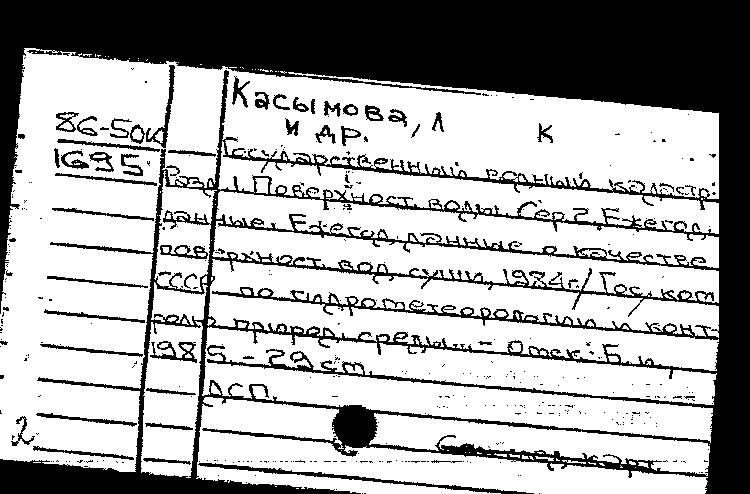 Касымова, Л
и др.
К
86-50к
1695
Государственный водный кадастр:
Разд. 1. Поверхност. воды. Сер. 2, Ежегод.
данные. Ежегод. данные о качестве
поверхност. вод суши, 1984г./Гос. ком.
СССР по гидрометеорологии и конт-
ролю природ. среды. - Омск: Б. и.,
1985. - 29 ст.
ДСП.
См. след. карт.
2